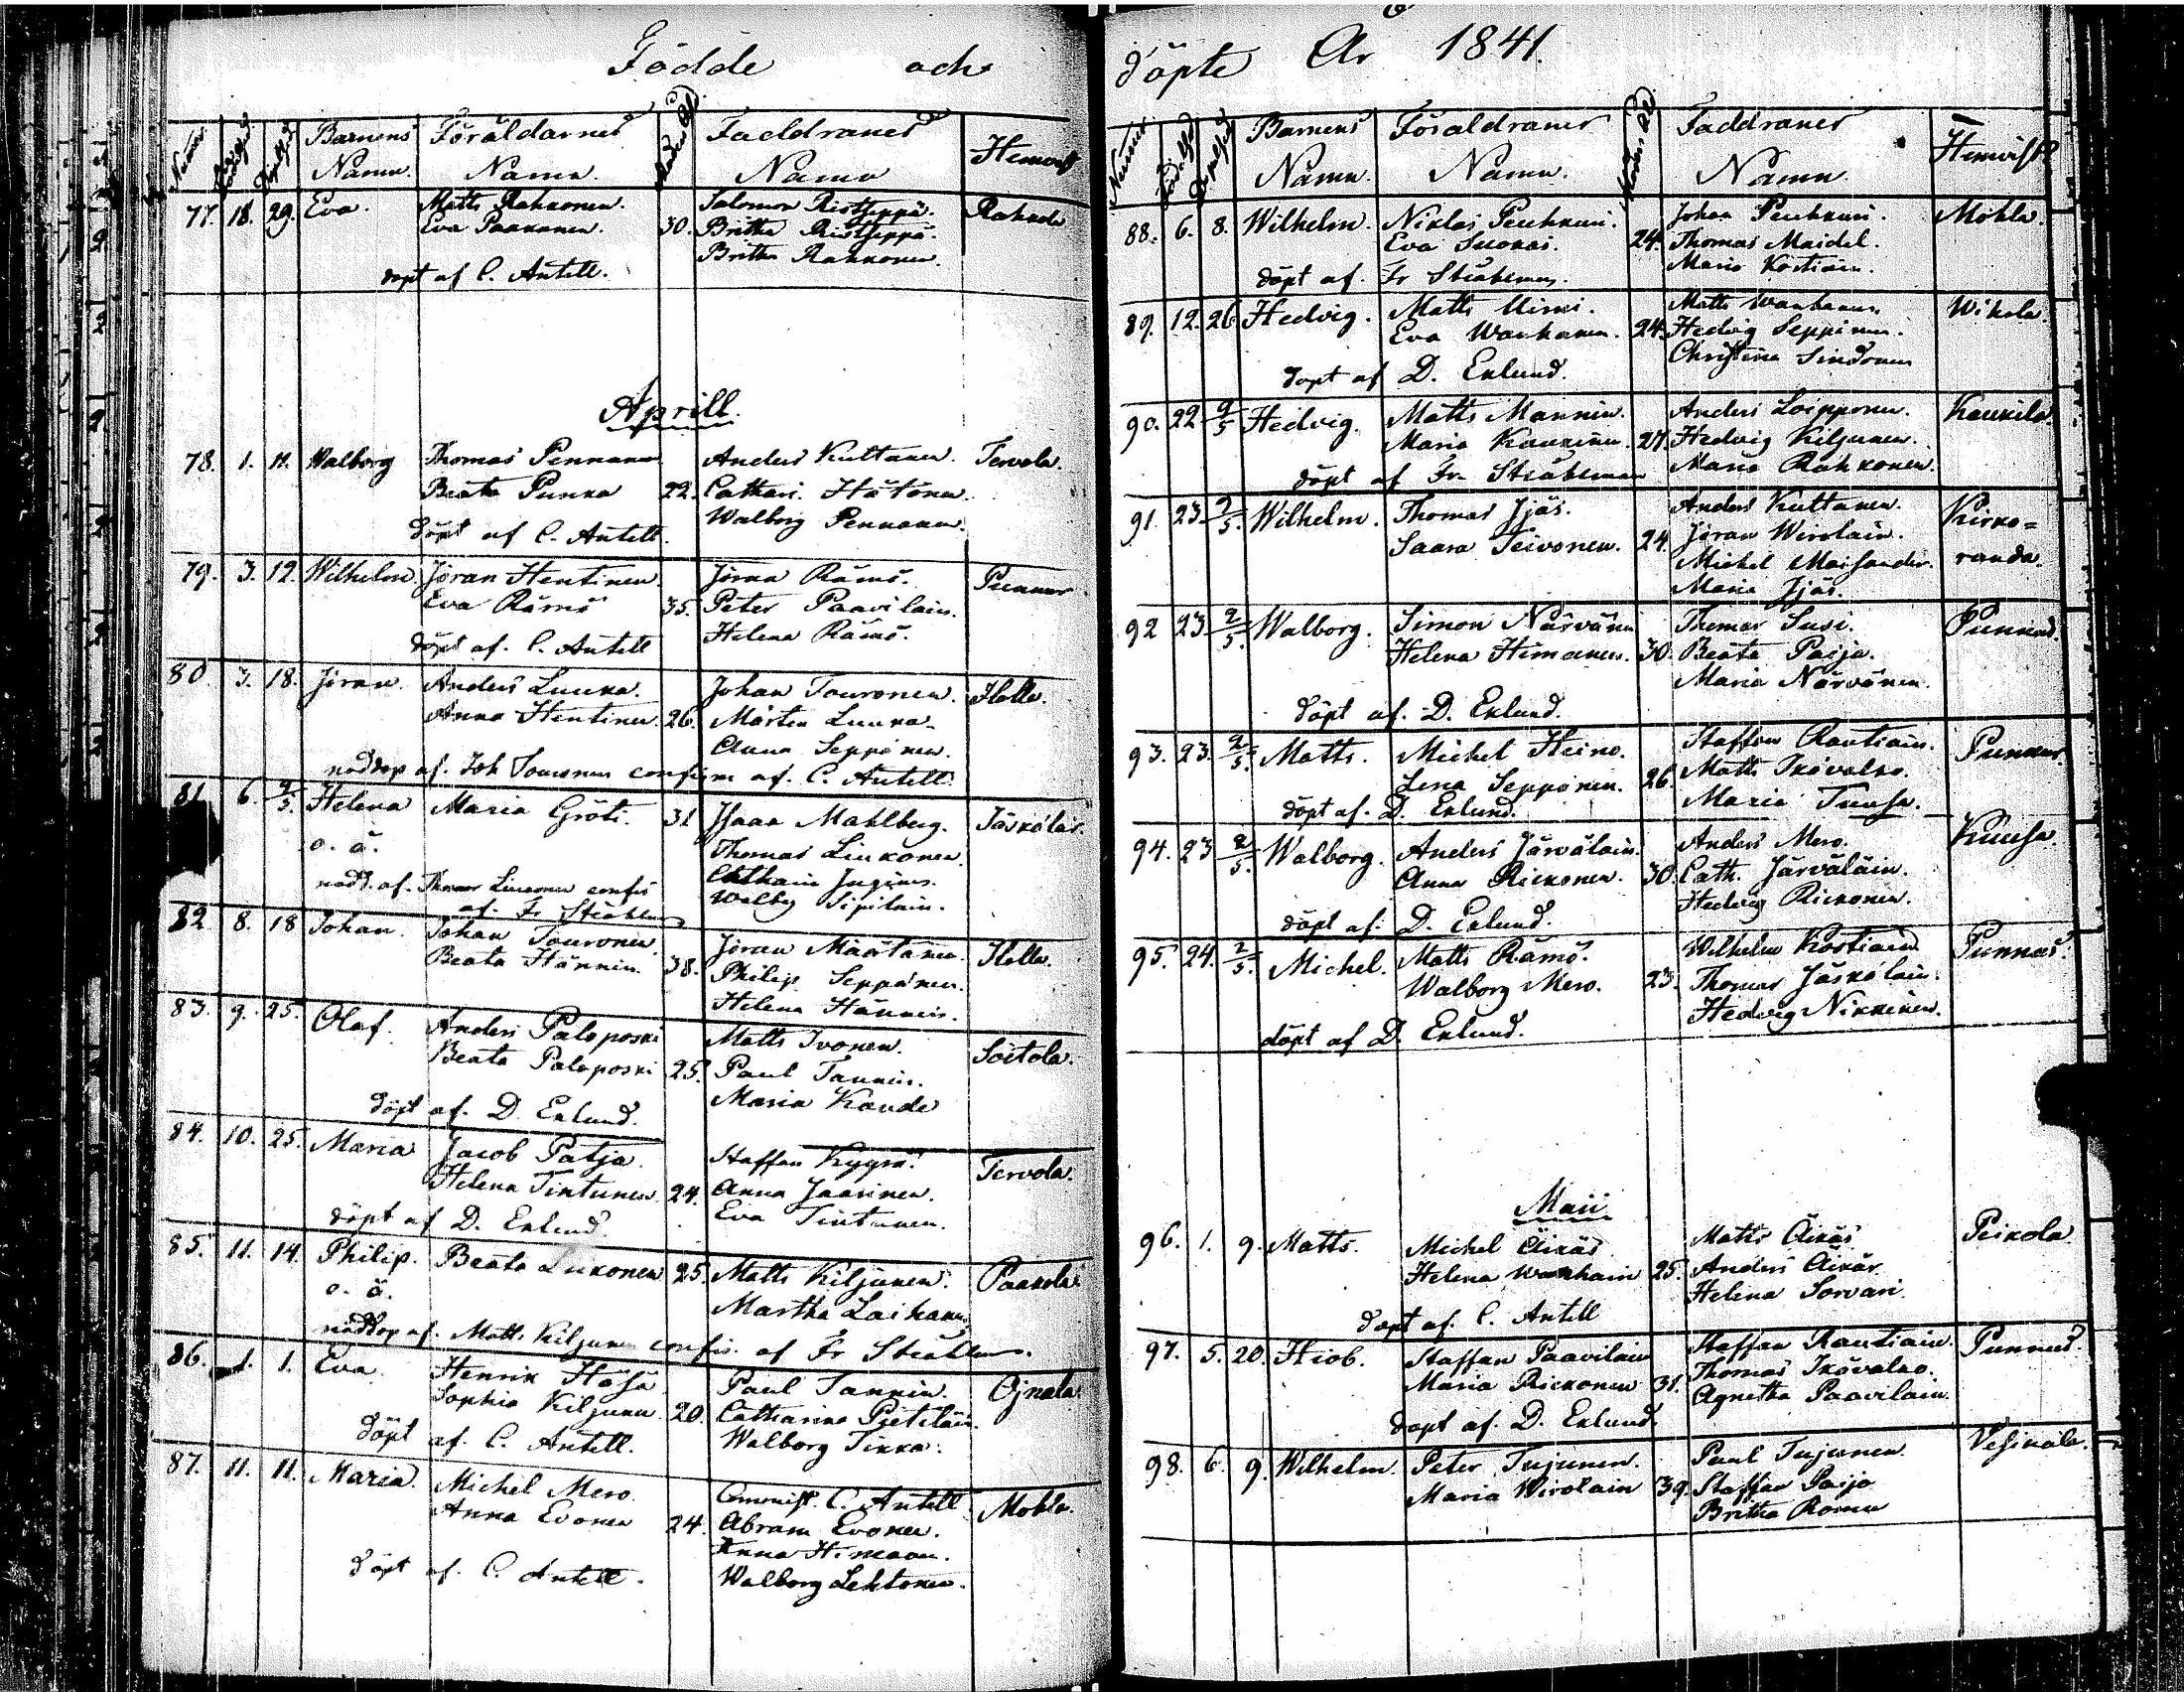 Födde och
Numer Födelsed. Dopelsed. Barnens Namn. Föräldarnes Namn. Modrens Ål. Faddranes Namn Hemvist
77. 18. 29. Eva. Matts Rahkonen. Salomon Ristseppä. Rahkola
Eva Paakanen. 30. Britha Ristseppä.
Britha Rahkonen.
döpt af C. Antell.
Aprill.
78. 1. 11. Walborg Thomas Pennanen Anders Kuttanen. Tervola.
Beata Punka 22. Cathari. Hätönen
Walborg Pennanen.
döpt af C. Antell.
79. 3. 12. Wilhelm. Jöran Hentinen. Jöran Rämö. Punnus
Eva Rämö 35. Peter Paavilain.
Helena Rämö.
döpt af. C. Antell
80. 3. 18. Jöran. Anders Luuka. Johan Touronen. Holla.
Anna Hentinen. 26. Mårten Luuka.
Anna Seppänen.
nöddöp af. Joh Touronen confirm af. C. Antell.
81 6. 9/5. Helena Maria Gröti. 31 Isaak Mahlberg. Jäskölä.
o. ä. Thomas Liukonen.
nödd. af. Thomas Liukonen confir
Walbg Sipilain.
af. Fr Stråhlman
82. 8. 18 Johan. Johan Touronen Jöran Määtänen. Holla.
Beata Hännin. 38. Philip Seppänen.
Helena Hännin.
83. 9. 25. Olaf. Anders Paloposki Matts Ivonen. Soitola.
Beata Paloposki 25. Paul Tannin.
Maria Koude
döpt af. D. Eklund.
84. 10. 25. Maria Jacob Patja. Staffan Kyyrö. Tervola.
Helena Tintunen. 24. Anna Jaarinen.
Eva Tintunen.
döpt af D. Eklund.
85. 11. 14. Philip. Beata Liukonen 25. Matts Kiljunen. Paakola
o. ä. Martha Laihanen
nöddop af. Matts Kiljunen confir. af Fr Stråhlman.
86. 1. 1. Eva. Henrik Hasa Paul Tannin. Ojnala
Sophia Kiljunen 20. Catharina Pietiläin.
Walborg Tikka.
döpt af. C. Antell.
87. 11. 11. Maria. Michel Mero. Comminist. C. Antell. Mohla.
Anna Evonen 24. Abram Evonen.
Anna Himanen.
Walborg Lehtonen.
döpt af. C. Antell.
döpte År 1841.
Numer Födelsed. Dopelsed. Barnens Namn. Föräldraner Namn. Modrens Ål. Faddraner Namn Hemvist
88. 6. 8. Wilhelm. Niklas Peuhkuri. Johan Peuhkuri. Mohla.
Eva Suokas. 24. Thomas Maidel.
Maria Kostiain.
döpt af. Fr Stråhlman.
89. 12. 26. Hedvig. Matts Mimi. Matts Wanhanen. Wikola.
Eva Wanhanen. 24. Hedvig Seppinen.
Christina Sindonen
döpt af D. Eklund.
90. 22 9/5 Hedvig. Matts Mannin. Anders Loipponen. Kaukila.
Maria Kaukinen. 27. Hedvig Kiljunen.
Maria Rahkonen.
döpt af Fr. Stråhlman
91. 23 2/5. Wilhelm. Thomas Jjäs. Anders Kuttanen. Kirko=
Saara Teivonen. 24. Jöran Wirolain. randa.
Michel Maisander.
Maria Jjäs.
92 23 2/5. Walborg. Simon Närvänen Thomas Susi. Punnus.
Helena Himanen. 30. Beata Paija.
Maria Närvänen.
döpt af. D. Eklund.
93. 23. 2/5. Matts. Michel Heino. Staffan Rautiain. Punnus.
Lena Seppänen. 26. Matts Ikävalko.
Maria Tuusa.
döpt af. D. Eklund.
94. 23 2/5. Walborg. Anders Järväläin. Anders Mero. Kuusa.
Anna Rickonen. 30. Cath. Järväläin.
Hedvig Rickonen.
döpt af: D. Eklund.
95. 24. 2/5. Michel. Matts Rämö. Wilhelm Kostiain Punnus.
Walborg Mero. 23. Thomas Jäskölain.
Hedvig Nikkinen.
döpt af D. Eklund.
Maii
96. 1. 9. Matts. Michel Äikäs Matts Äikäs Peikola
Helena Wanhain 25. Anders Äikäs
Helena Sorvari.
döpt af. C. Antell
97. 5. 20. Hiob. Staffan Paavilain Staffan Rautiain. Punnus.
Maria Rickonen 31. Thomas Ikävalko.
Agnetha Paavilain.
döpt af. D. Eklund.
98. 6. 9. Wilhelm. Peter Tujunen. Paul Tujunen. Vesikala.
Maria Wirolain 39. Staffan Paija
Britha Roinen